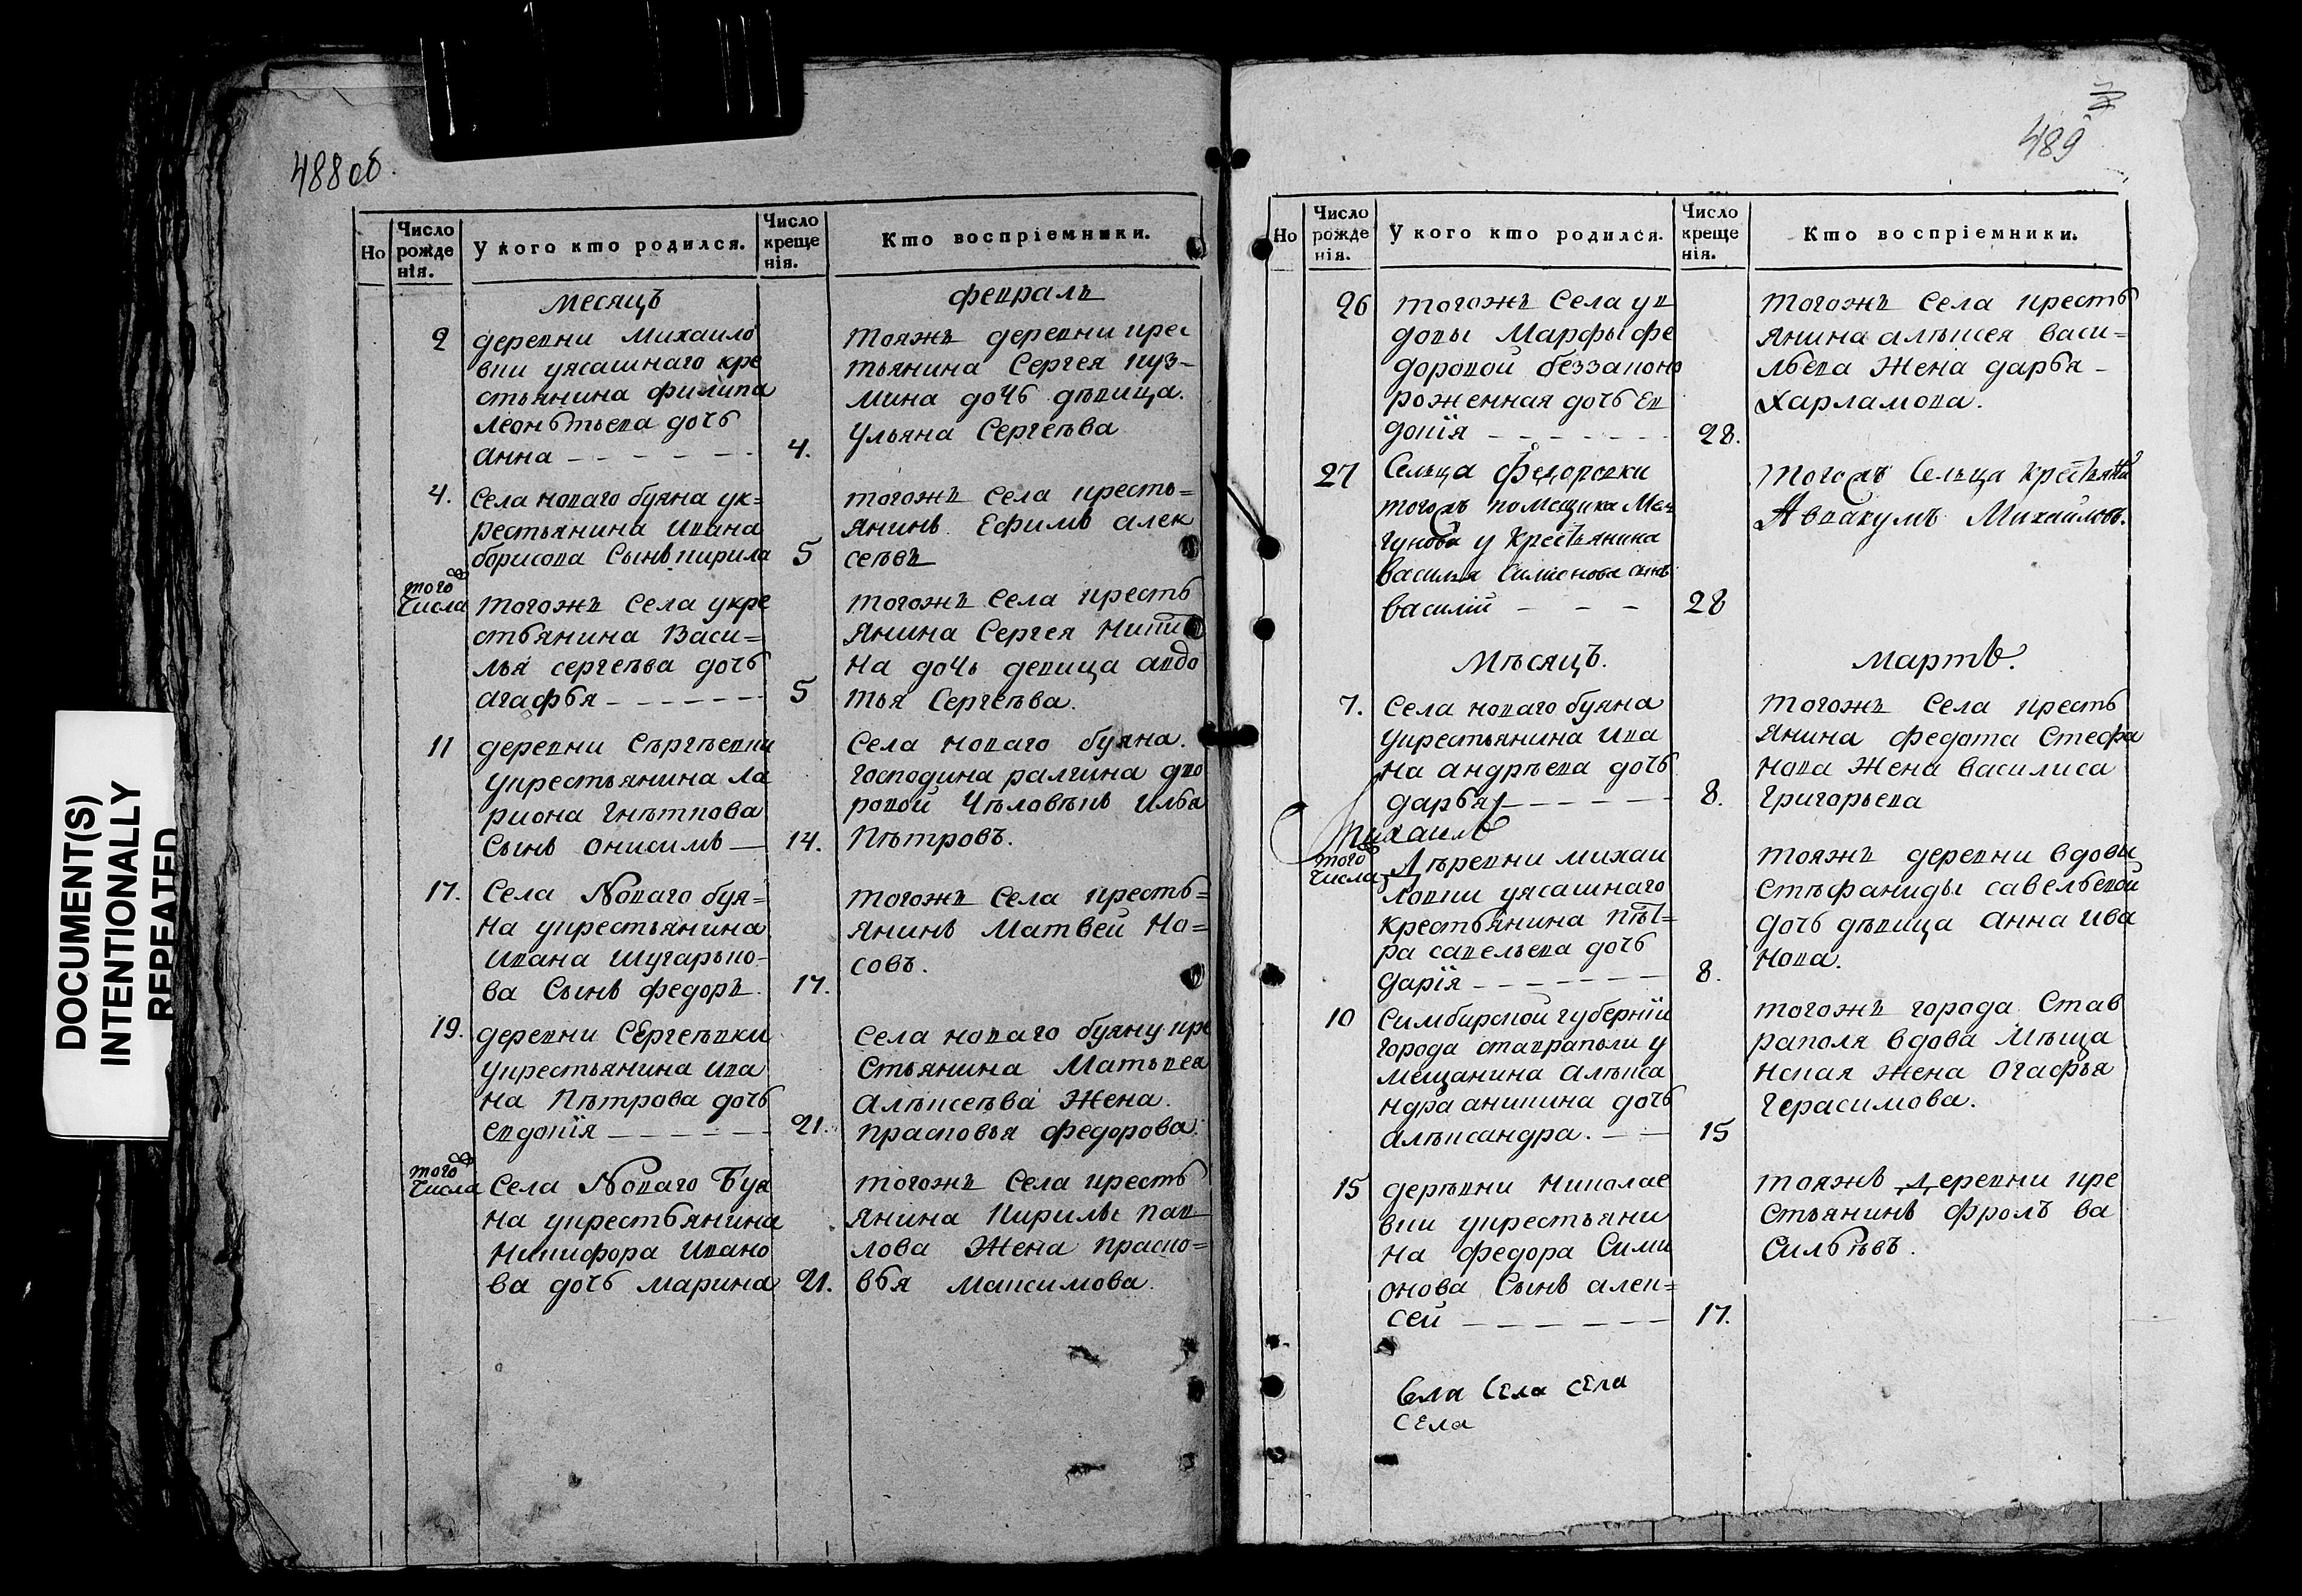 488 об.
Но
Число рожденія.
У кого кто родился.
Число крещенія.
Кто воспріемники.
месяцъ
февраль
2
деревни Михаило
вки уясашнаго кре
стьянина филипа
Леонтьева дочь
анна
4.
тояжъ деревни крес
тьянина Сергея куз-
мина дочь дѣвица.
Ульяна Сергеѣва
4.
Села новаго буяна ук=
рестьянина Ивана
борисова Сынъ кирила
5
тогожъ Села кресть=
янинъ Ефимъ алек
сеѣвъ
того
числа
тогожъ Села укре
стьянина Васи=
лья сергеѣва дочь
агафья
5
тогожъ Села кресть
янина Сергея Ники
на дочь девица авдо
тья Сергеѣва.
11
деревни Сѣргѣевки
укрестьянина Ла
риона Гнѣткова
Сынъ онисимъ
14.
Села новаго буяна.
господина ралгина дво
ровой Чѣловѣкъ Илья
Пѣтровъ.
17.
Села Новаго буя=
на укрестьянина
Ивана Шугарько-
ва Сынъ федоръ
17.
тогожъ Села кресть=
янинъ Матвей Но=
совъ.
19.
деревни СЕргеѣвки
укрестьянина ива
на Пѣтрова дочь
евдокїя
21.
Села новаго буяну кре
Стьянина Матьвея
Алѣксеѣва Жена
прасковья федорова.
того
числа
Села Новаго Буя
на укрестьянина
Никифора Ивано
ва дочь марина
21.
тогожъ Села кресть
янина Кирилы пав
лова Жена праско=
вья максимова.
489
Но
Число рожденія.
У кого кто родился.
Число крещенія.
Кто воспріемники.
26
тогожъ Села ув
довы Марфы фе
доровой беззаконо
роженная дочь Ев
докїя
28.
тогожъ Села кресть
янина алѣксея васи=
льева Жена дарья
Харламова.
27
Сельца Федоровки
тогожъ помещика Мел
гунова у крестьянина
василья Симионова сынъ
василій
28
тогожъ Сельца крестьянинъ
Аввакумъ Михайловъ.
Мѣсяцъ.
мартъ.
7.
Села новаго буяна
укрестьянина Ива
на андрѣева дочь
дарья
8.
тогожъ Села кресть
янина федота Стефа
нова Жена василиса
Григорьева
Михаилъ
того
числа
Дѣревни михаи
ловки уясашнаго
крестьянина пѣт-
ра савельева дочь
дарія
8.
тояжъ деревни вдовы
Стѣфаниды савельевой
дочь дѣвица анна ива
нова.
10
Симбирской губерніи
города ставраполи у
мещанина Алѣкса
ндра аникина дочь
алѣксандра.
15
тогожъ города Став
раполя вдова Мѣща
нская жена Огафья
Герасимова.
15
дерѣвни николае
вки укрестьяни
на федора Сими
онова Сынъ алек=
сей
17.
тояжъ Деревни кре
Стьянинъ фролъ ва
Сильѣвъ.
Села Села сЕла
СЕла
DOCUMENT(S)
INTENTIONALLY
REPEATED